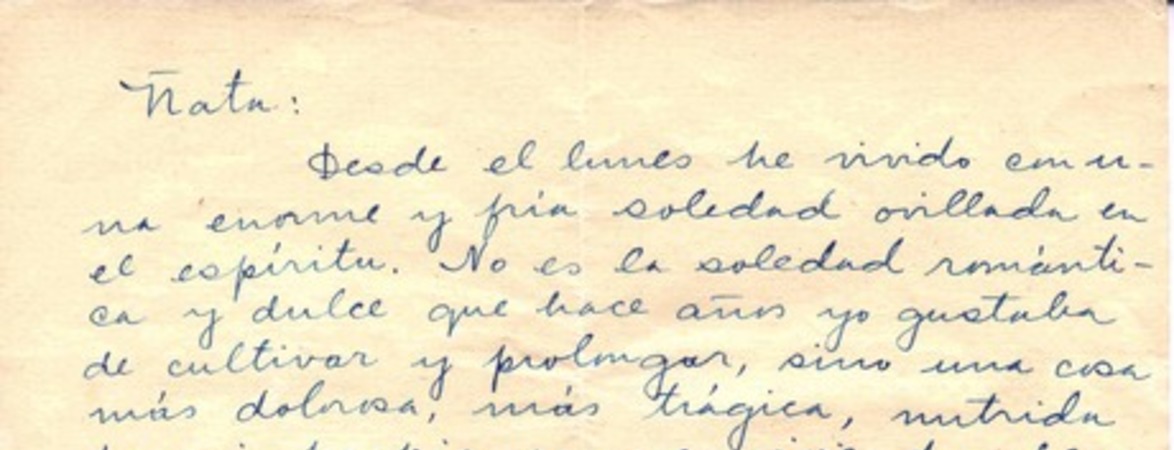 Ñata:
Desde el lunes he vivido con u-
na enorme y fría soledad ovillada en
el espíritu. No es la soledad románti-
ca y dulce que hace años yo gustaba
de cultivar y prolongar, sino una cosa
más dolorosa, más trágica, nutrida